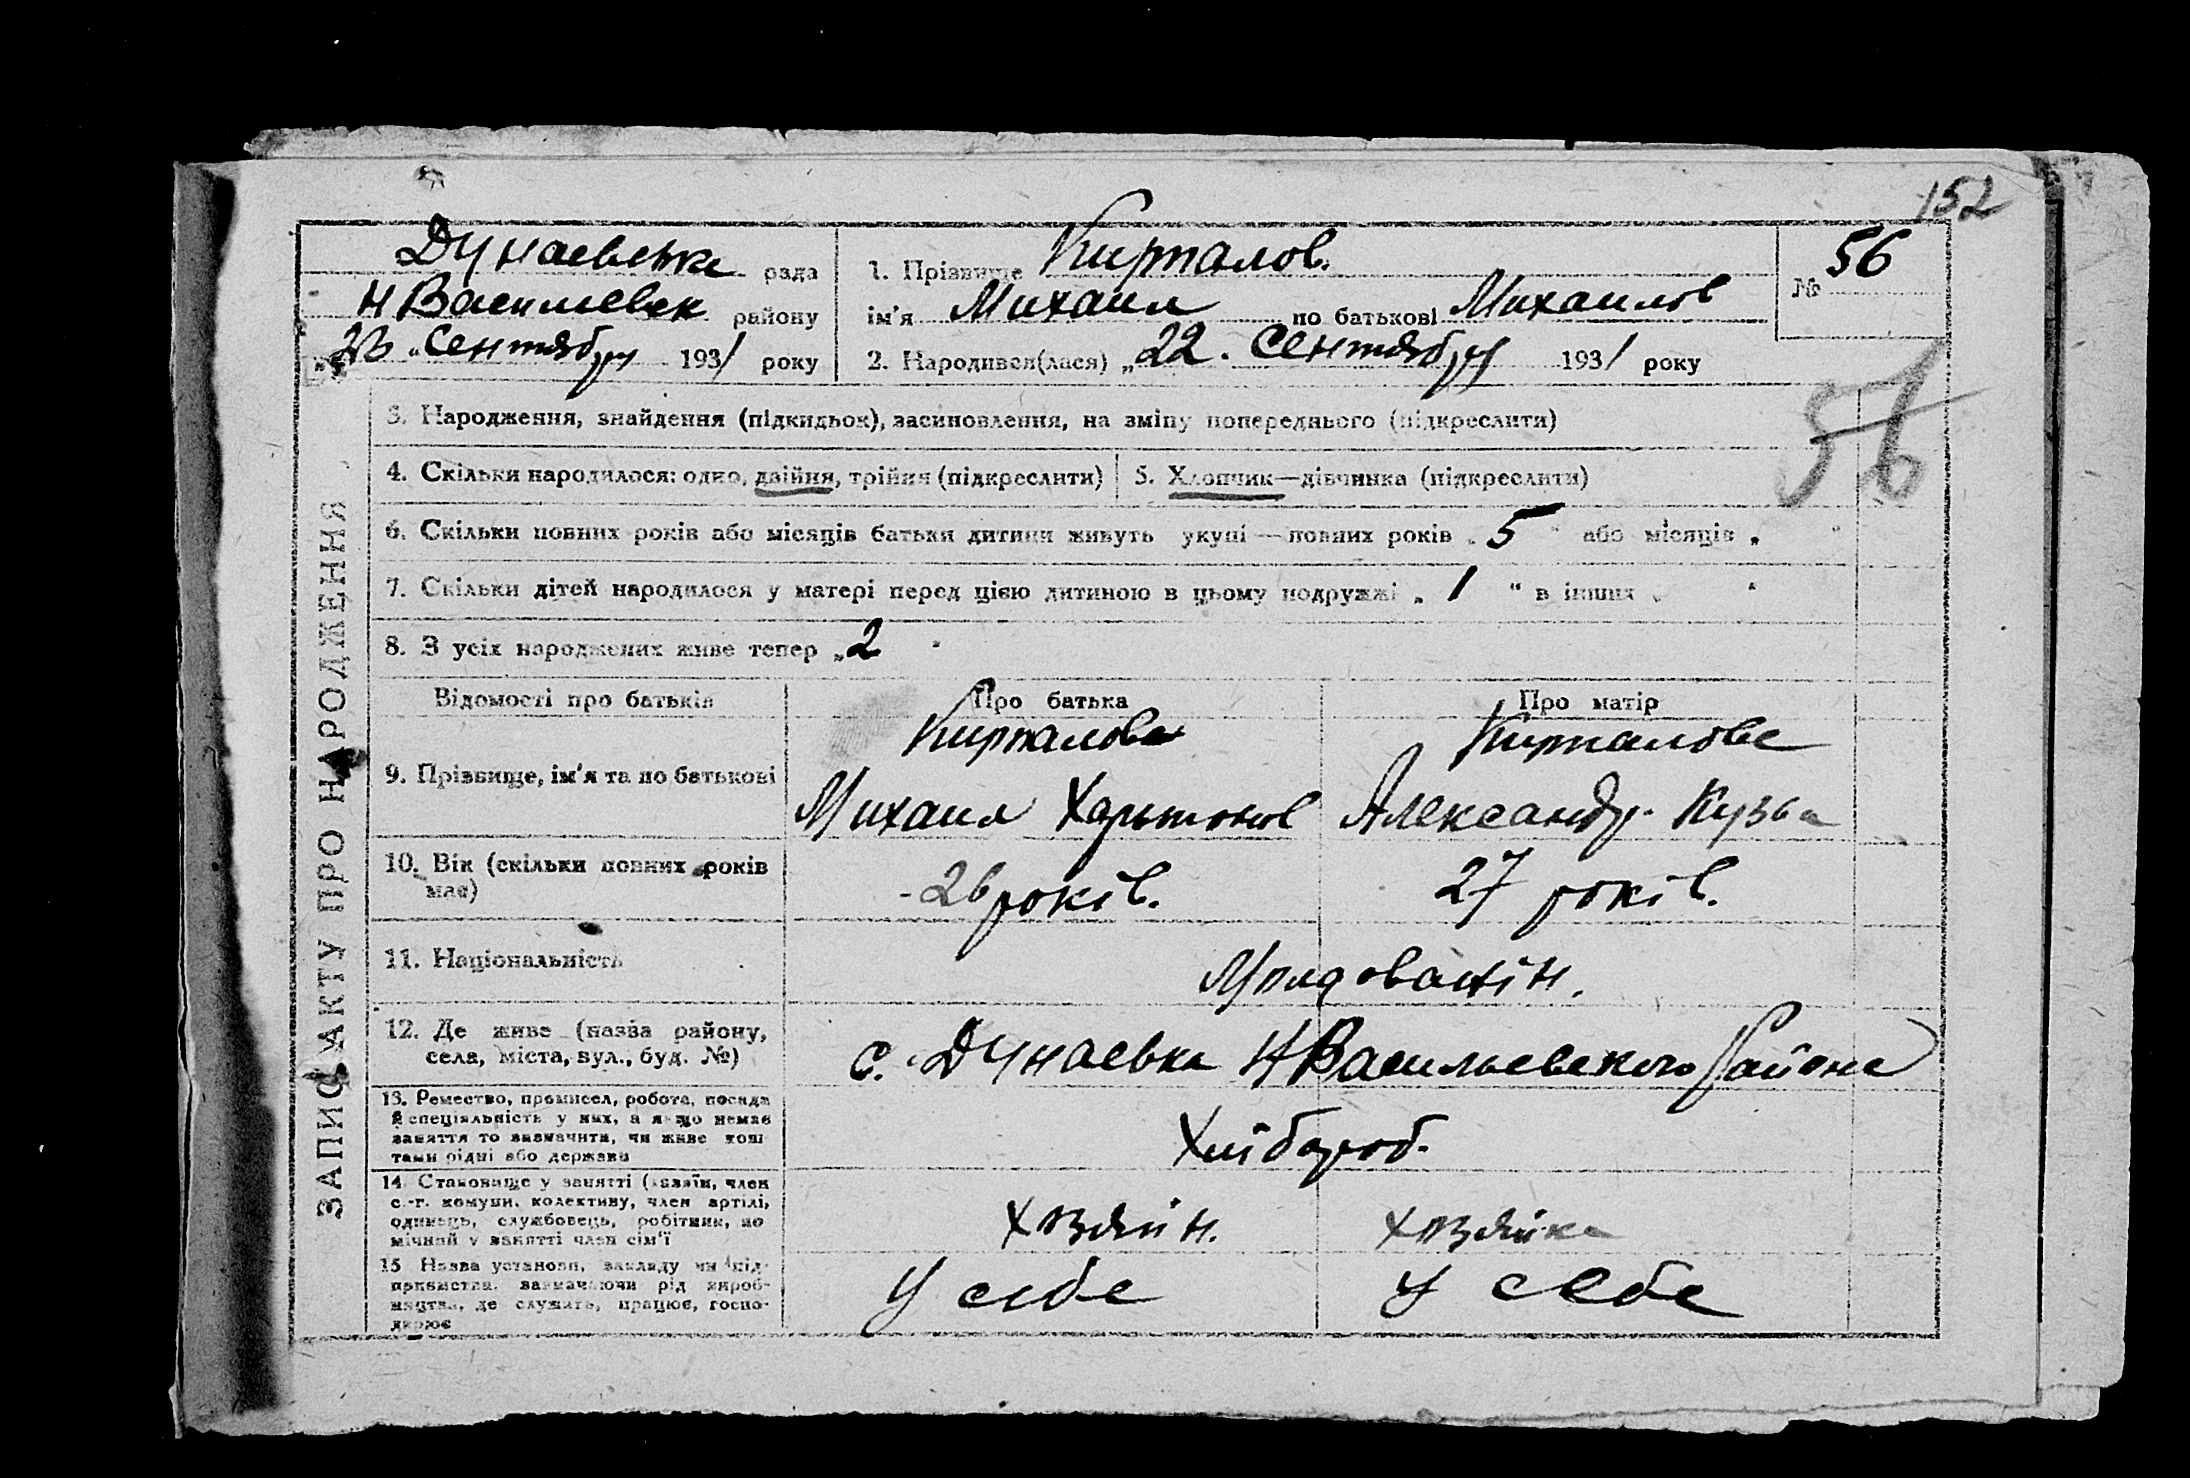 152
Дунаевська рада
Н Васильевск району
„23" Сентября 1931 року
1. Прізвище Кирталов.
ім'я Михаил по батькові Михаилов
2. Народився(лася) „22. Сентября 1931 року
№ 56
56
ЗАПИС АКТУ ПРО НАРОДЖЕННЯ
3. Народження, знайдення (підкидьок), засиновлення, на зміну попереднього (підкреслити)
4. Скільки народилося: одно, двійня, трійня (підкреслити)
5. Хлопчик—дівчинка (підкреслити)
6. Скільки повних років або місяців батьки дитини живуть укупі — повних років „5" або місяців „ "
7. Скільки дітей народилося у матері перед цією дитиною в цьому подружжі „1" в інших „ "
8. З усіх народжених живе тепер „2"
Відомості про батьків
Про батька
Про матір
9. Прізвище, ім'я та по батькові
Кирталов
Михаил Харытонов
Кирталова
Александр. Кузьм
10. Вік (скільки повних років
має)
-26 років.
27 років.
11. Національність
Молдованін.
12. Де живе (назва району,
села, міста, вул., буд. №)
с. Дунаевка Н Васильевского Района
13. Ремество, промисел, робота, посада
й спеціяльність у них, а якщо немає
заняття то визначити, чи живе кош
тами рідні або держави
Хлібороб.
14. Становище у занятті (хазяїн, член
с.-г. комуни, колективу, член артілі,
одинець, службовець, робітник, по
мічний у занятті член сім'ї
Хозяйн.
Хозяйка
15 Назва установи, закладу чи під-
приємства, зазначаючи рід вироб-
ництва, де служить, працює, госпо-
дарює
у себе
у себе